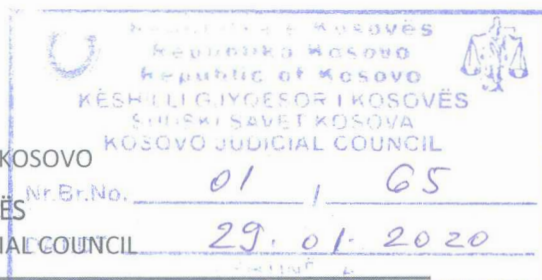 Republika e Kosovës
Republika Kosovo
Republic of Kosovo
KËSHILLI GJYQËSOR I KOSOVËS
SUDSKI SAVET KOSOVA
KOSOVO JUDICIAL COUNCIL
KOSOVO
Nr.Br.No. 01 / 65
ËS
IAL COUNCIL 29. 01. 2020